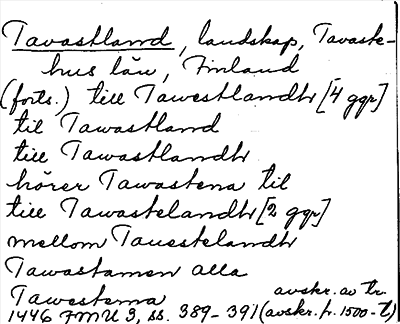 Tavastland, landskap, Tavaste-
hus län, Finland
(forts.) till Tawestlandh [4 ggr]
til Tawastland
till Tawastlandh
hörer Tawastena til
till Tawastelandh [2 ggr]
mellom Tauestelandh
Tawastamen alla
Tawestema avskr. av tr.
1446 FMU 3, ss. 389-391 (avskr. fr. 1500-t)